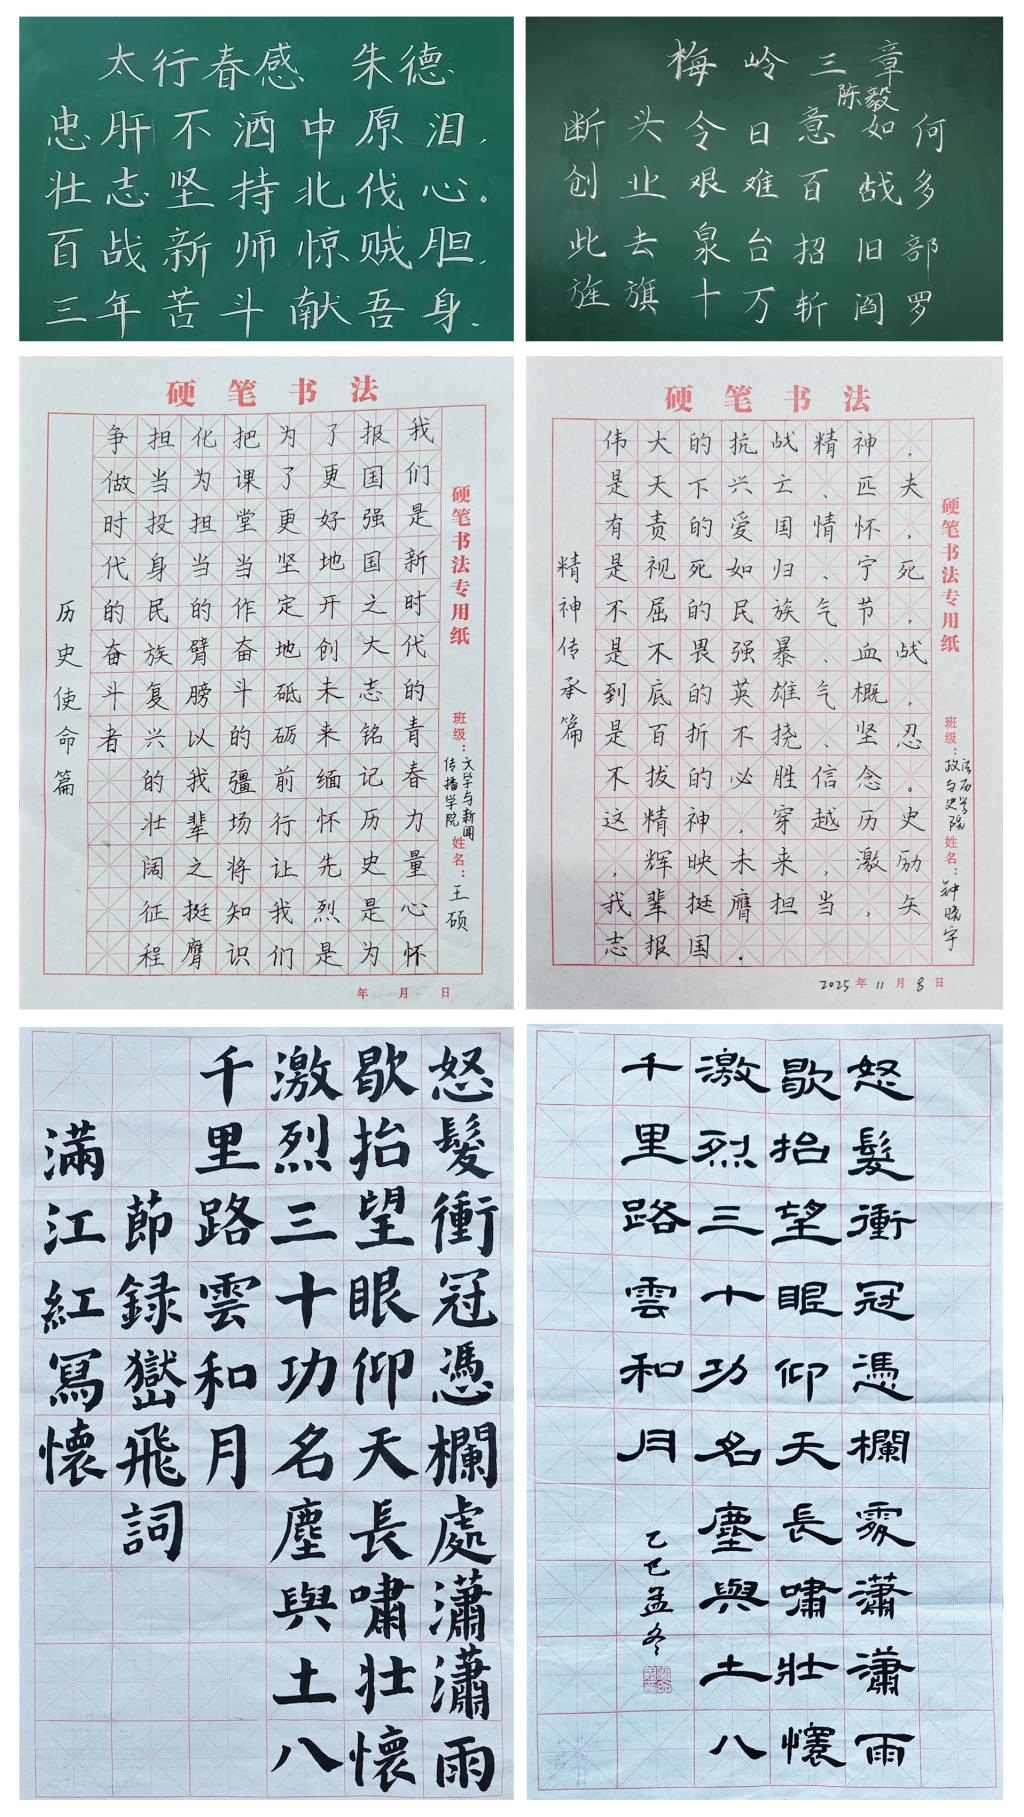 太行春感 朱德
忠肝不洒中原泪，
壮志坚持北伐心。
百战新师惊贼胆，
三年苦斗献吾身.
梅岭三章
陈毅
断头令日意如何
创业艰难百战多
此去泉台招旧部
旌旗十万斩阎罗
硬笔书法
硬笔书法专用纸
班级：文学与新闻传播学院 姓名：王硕
我们是新时代的青春力量心怀
报国强国之大志铭记历史是为
了更好地开创未来缅怀先烈是
为了更坚定地砥砺前行让我们
把课堂当作奋斗的疆场将知识
化为担当的臂膀以我辈之挺膺
担当投身民族复兴的壮阔征程
争做时代的奋斗者
历史使命篇
年 月 日
硬笔书法
硬笔书法专用纸
班级：政法与历史学院 姓名：钟晓宇
伟大的抗战精神，
是天下兴亡、匹夫
有责的爱国情怀，
是视死如归、宁死
不屈的民族气节，
是不畏强暴、血战
到底的英雄气概，
是百折不挠、坚忍
不拔的必胜信念。
这精神，穿越历史
，辉映未来，激励
我辈挺膺担当，矢
志报国.
精神传承篇
2025年11月8日
怒髮衝冠憑欄處瀟瀟雨
歇抬望眼仰天長嘯壯懷
激烈三十功名塵與土八
千里路雲和月
節録嶽飛詞
滿江紅寫懷
怒髮衝冠憑欄處瀟瀟雨
歇抬望眼仰天長嘯壯懷
激烈三十功名塵與土八
千里路雲和月
乙巳孟冬